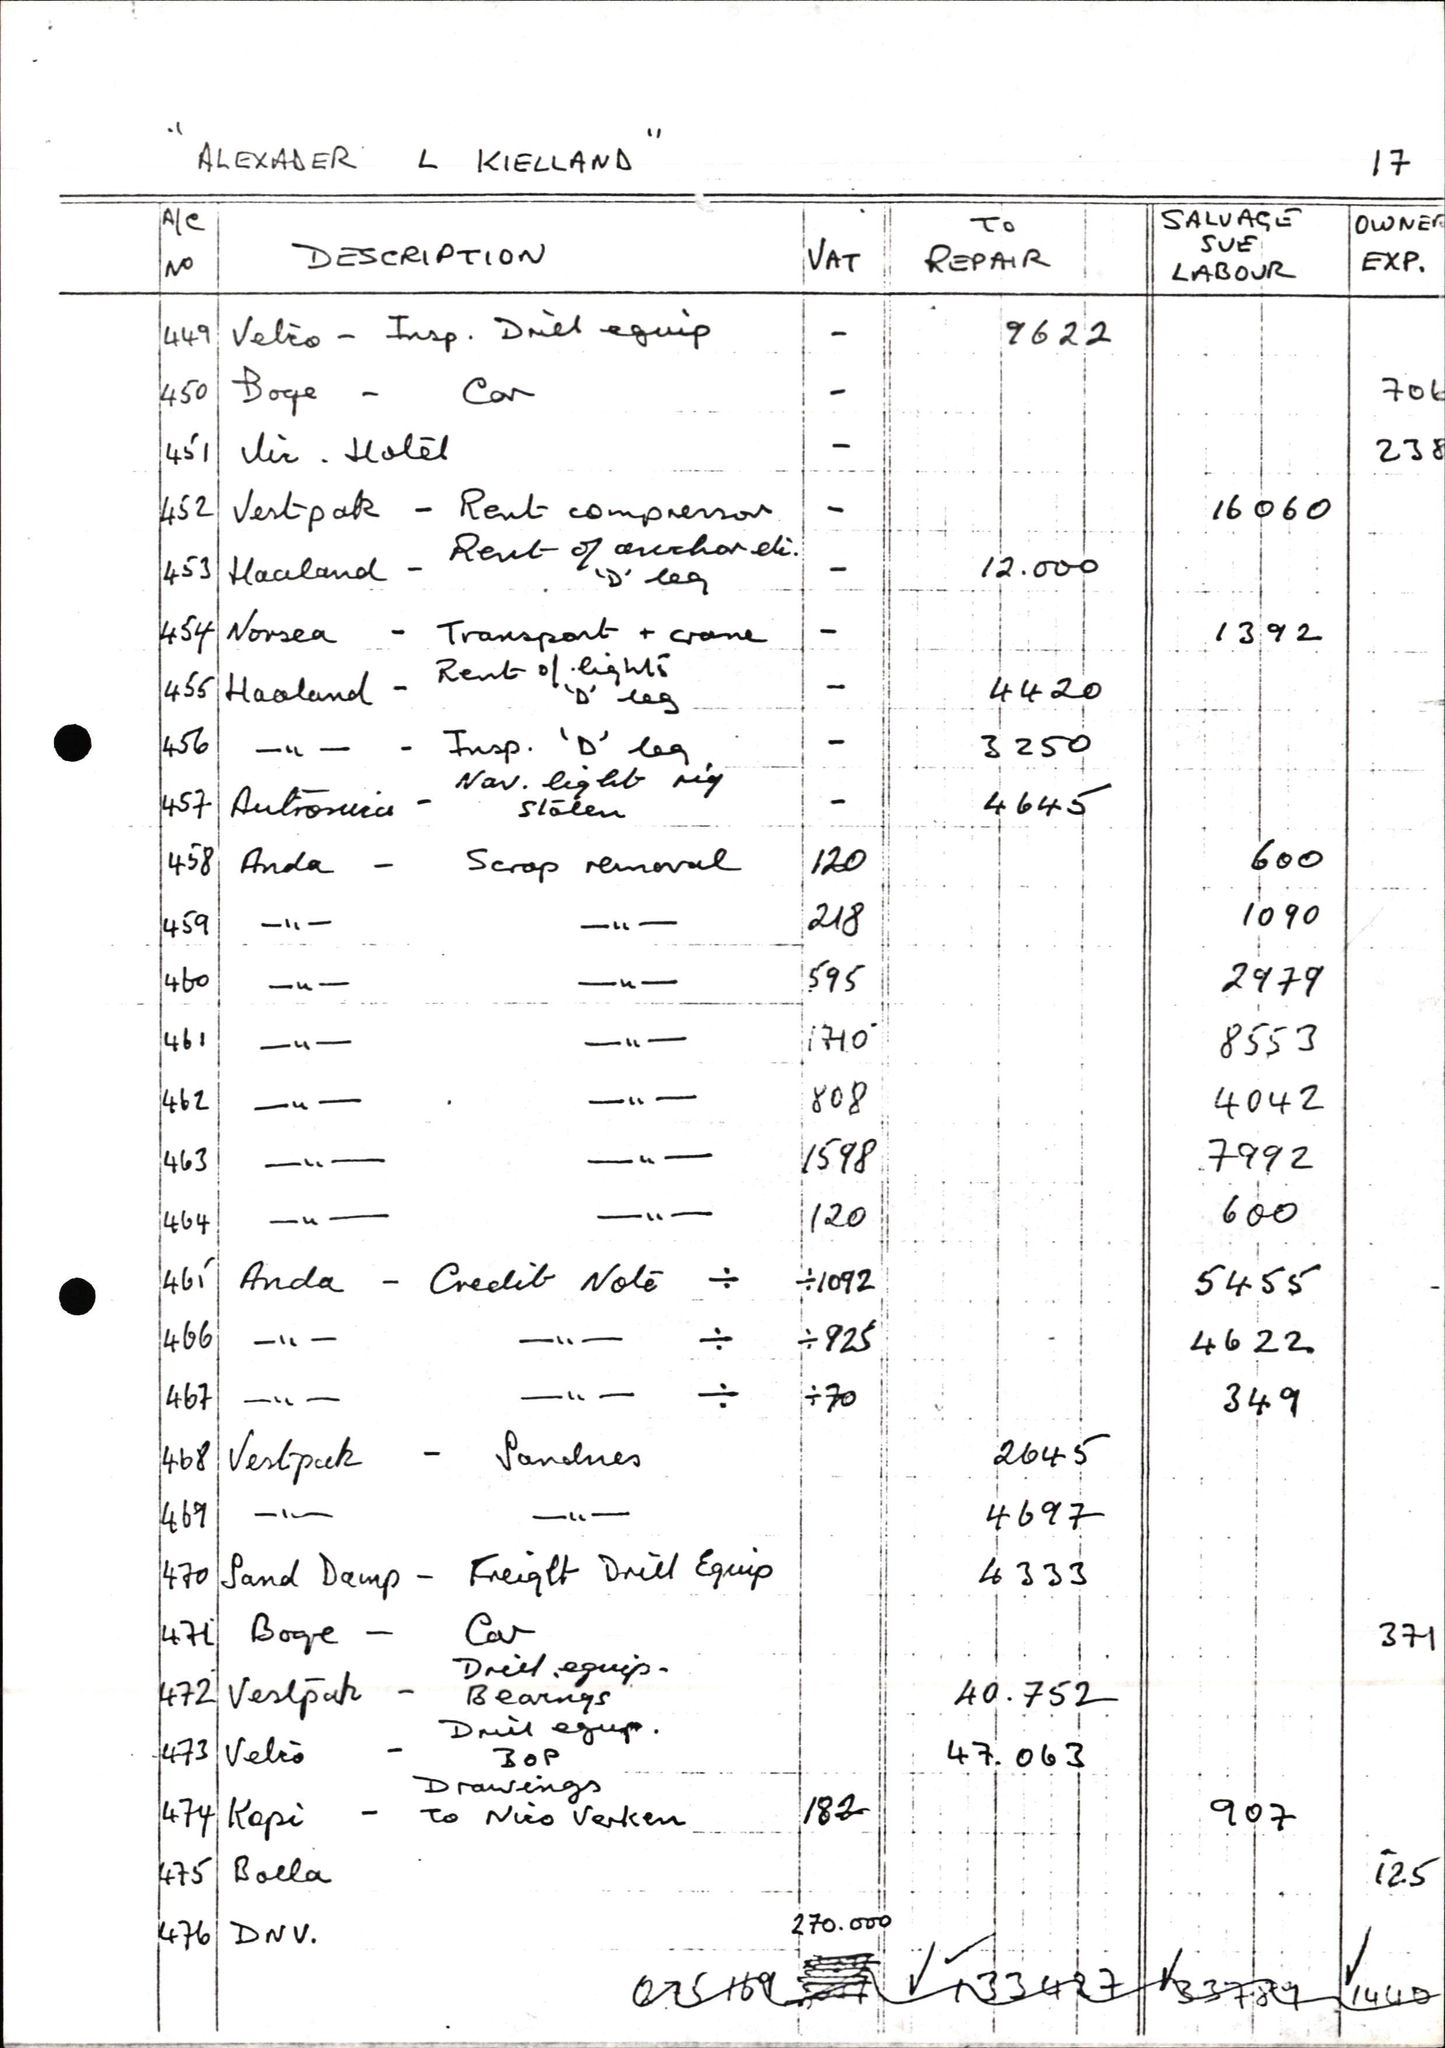 "ALEXADER L KIELLAND" 17
A/C NO DESCRIPTION VAT TO REPAIR SALVAGE SUE LABOUR OWNER EXP.
449 Velco - Insp. Drill equip - 9622
450 Boge - Car - 706
451 Vic. Hotel - 238
452 Vestpak - Rent compressor - 16060
453 Haaland - Rent of anchor etc. 'D' leg - 12.000
454 Norsea - Transport + crane - 1392
455 Haaland - Rent of lights 'D' leg - 4420
456 —"— - Insp. 'D' leg - 3250
457 Autronica - Nav. light rig stolen - 4645
458 Anda - Scrap removal 120 600
459 —"— —"— 218 1090
460 —"— —"— 595 2979
461 —"— —"— 1710 8553
462 —"— —"— 808 4042
463 —"— —"— 1598 7992
464 —"— —"— 120 600
465 Anda - Credit Note ÷ ÷1092 5455
466 —"— —"— ÷ ÷925 4622
467 —"— —"— ÷ ÷70 349
468 Vestpak - Sandnes 2645
469 —"— —"— 4697
470 Sand Damp - Freight Drill Equip 4333
471 Boge - Car 371
472 Vestpak - Drill equip. Bearings 40.752
473 Velco - Drill equip. BOP 47.063
474 Kopi - Drawings to Nico Verken 182 907
475 Bolla 125
476 DNV. 270.000
133427 33789 1440